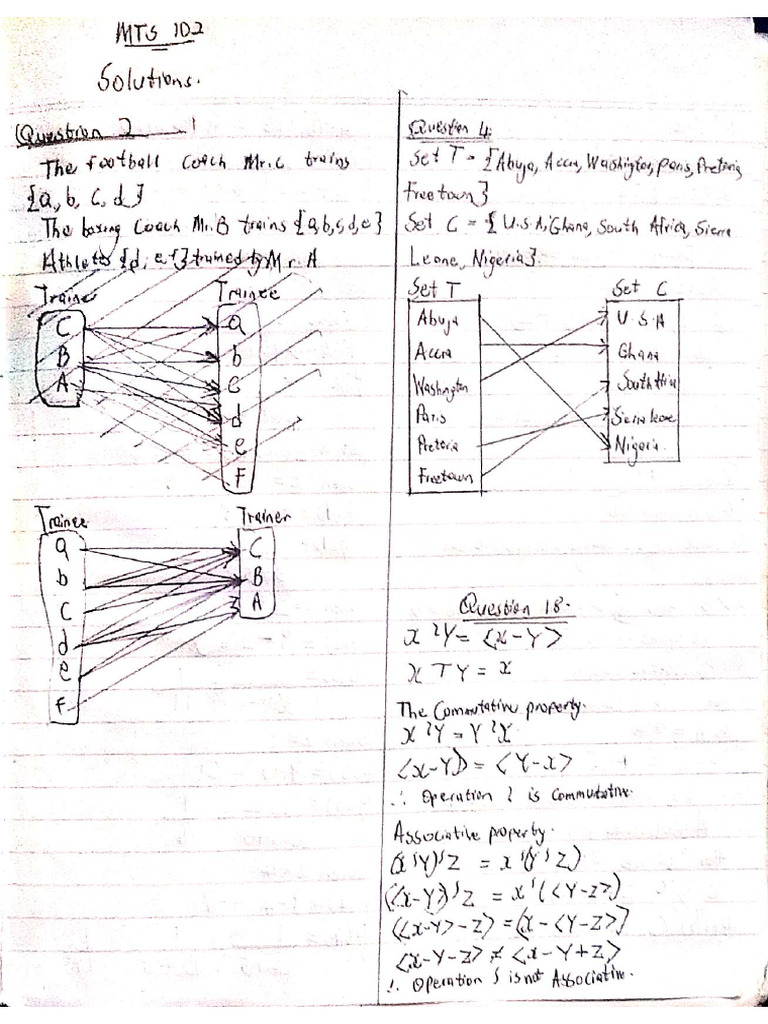 MTS 102
Solutions.
Question 2 1
The football Coach Mr.C trains
{a, b, c, d}
The boxing Coach Mr.B trains {a,b,c,d,e}
Athletes {d, e, f} trained by Mr. A
Trainer Trainee
C
B
A
a
b
c
d
e
F
Trainee Trainer
a
b
c
d
e
F
C
B
A
Question 4:
Set T = {Abuja, Accra, Washington, Paris, Pretoria,
Freetown}
Set C = { U.S.A, Ghana, South Africa, Sierra
Leone, Nigeria}.
Set T Set C
Abuja
Accra
Washington
Paris
Pretoria
Freetown
U.S.A
Ghana
South Africa
Sierra leone
Nigeria
Question 18.
x ≀ Y = <x - Y>
x T Y = x
The Commutative property.
x ≀ Y = Y ≀ X
<x-Y> = <Y-x>
∴ Operation ≀ is commutative.
Associative property.
(x ≀ Y) ≀ Z = x ≀ (Y ≀ Z)
(<x-Y>) ≀ Z = x ≀ (<Y-Z>)
(<x-Y>-Z) = (x - <Y-Z>)
<x-Y-Z> ≠ <x-Y+Z>
∴ Operation ≀ is not Associative.